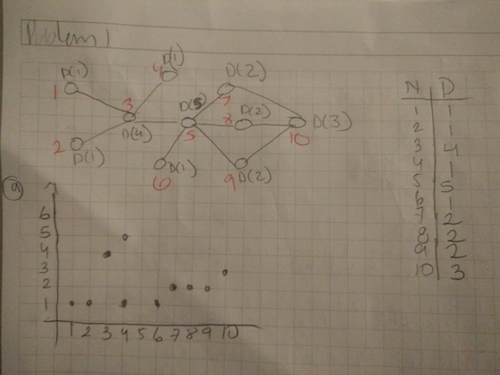 Problem 1
D(1)
4 D(1)
1
D(2)
3 D(5) 7
D(4) 5 8 D(2) D(3)
10
2 D(1)
D(1)
6
9 D(2)
N D
1 1
2 1
3 4
4 1
5 5
6 1
7 2
8 2
9 2
10 3
a
6
5
4
3
2
1
1 2 3 4 5 6 7 8 9 10